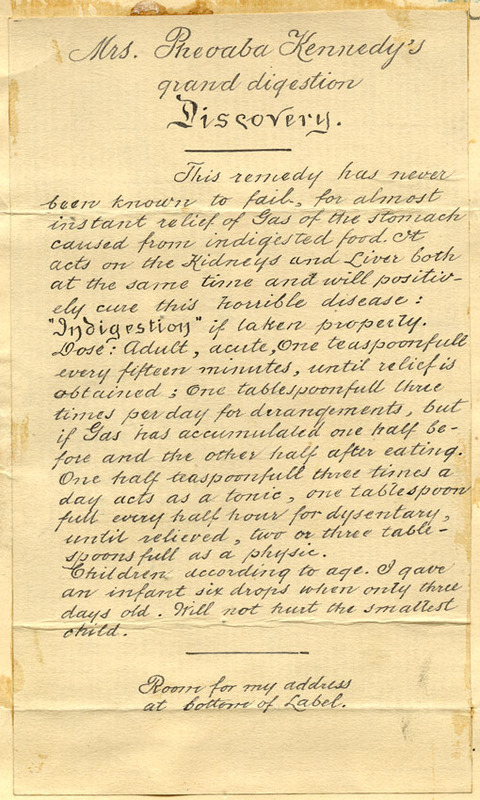 Mrs. Pheoaba Kennedy's
grand digestion
Discovery.
This remedy has never
been known to fail, for almost
instant relief of Gas of the stomach
caused from indigested food. It
acts on the Kidneys and Liver both
at the same time and will positiv-
ely cure this horrible disease:
"Indigestion" if taken property.
Dose: Adult, acute, One teaspoonfull
every fifteen minutes, until relief is
obtained; One tablespoonfull three
times per day for derangements, but
if Gas has accumulated one half be-
fore and the other half after eating.
One half teaspoonfull three times a
day acts as a tonic, one tablespoon
full every half hour for dysentary,
until relieved, two or three table-
spoons full as a physic.
Children according to age. I gave
an infant six drops when only three
days old. Will not hurt the smallest
child.
Room for my address
at bottom of Label.